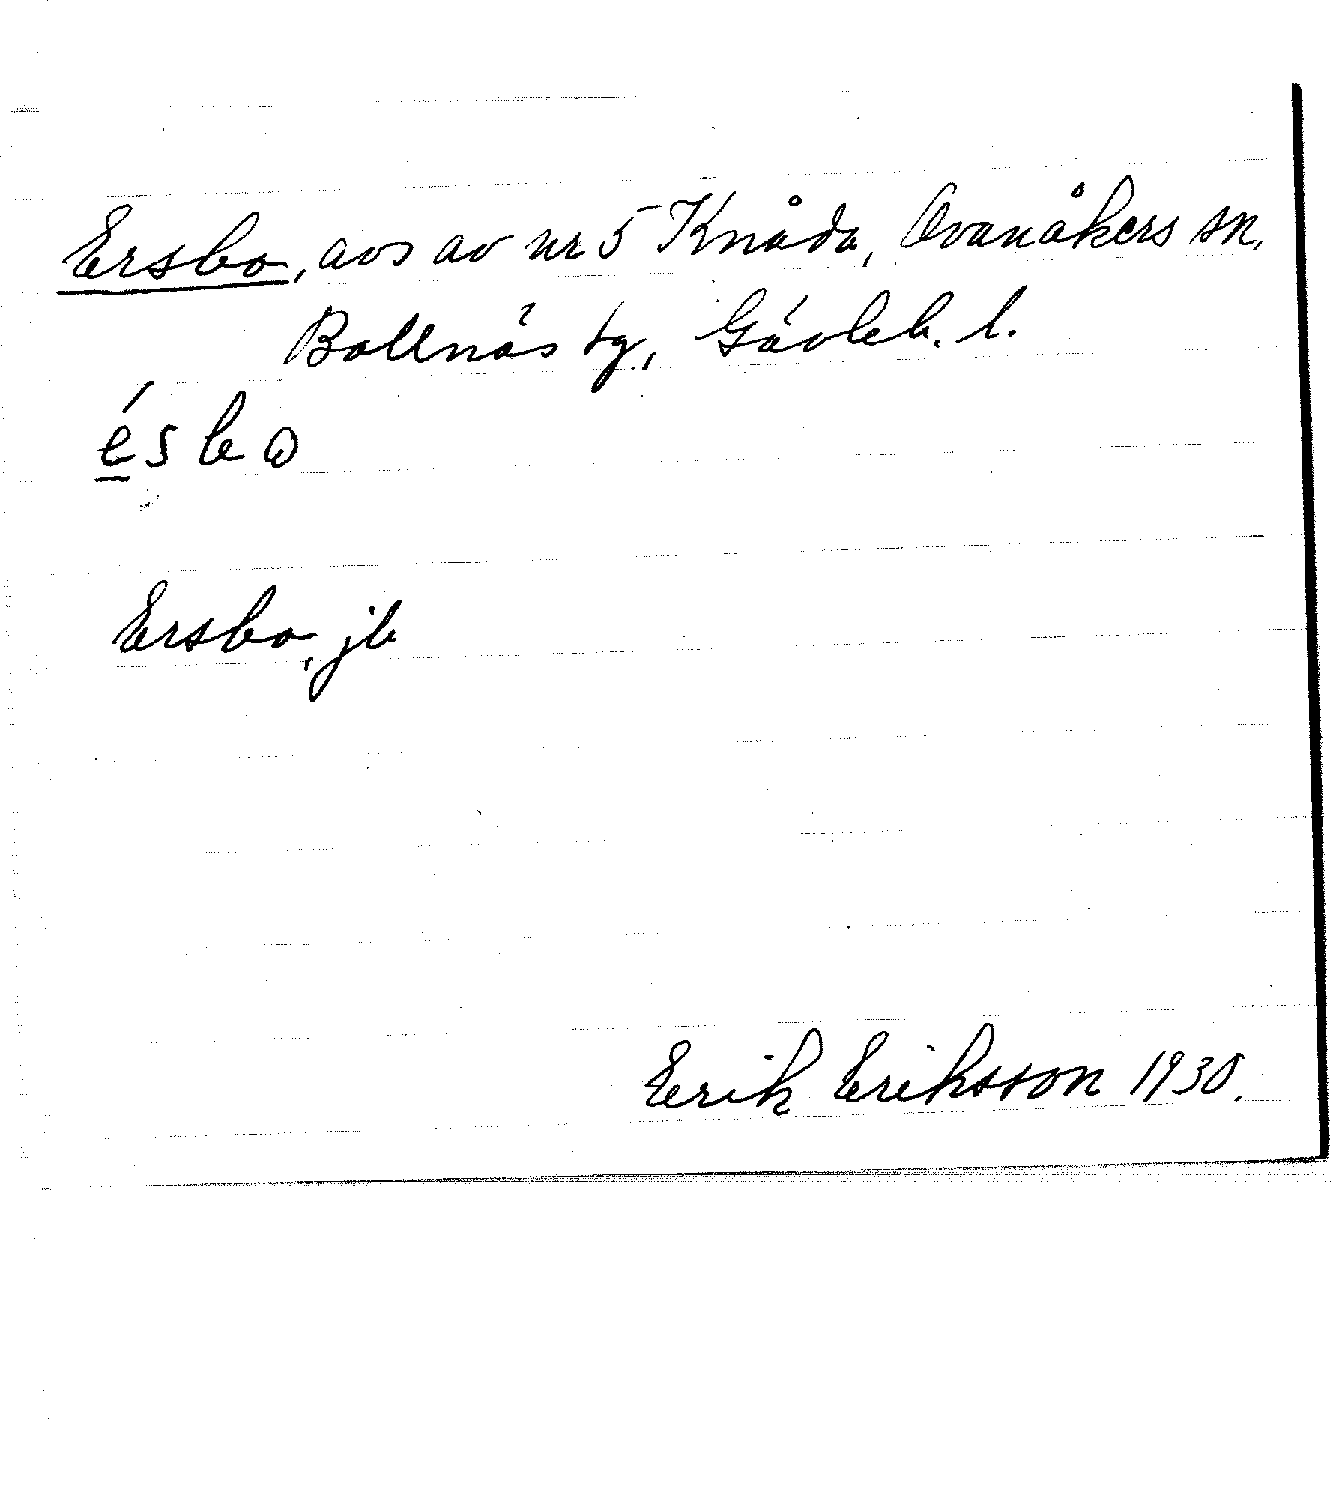 Ersbo, avs av nr 5 Knåda, Ovanåkers sn,
Bollnäs tg, Gävleb. l.
ésbω
Ersbo, jb
Erik Eriksson 1930.